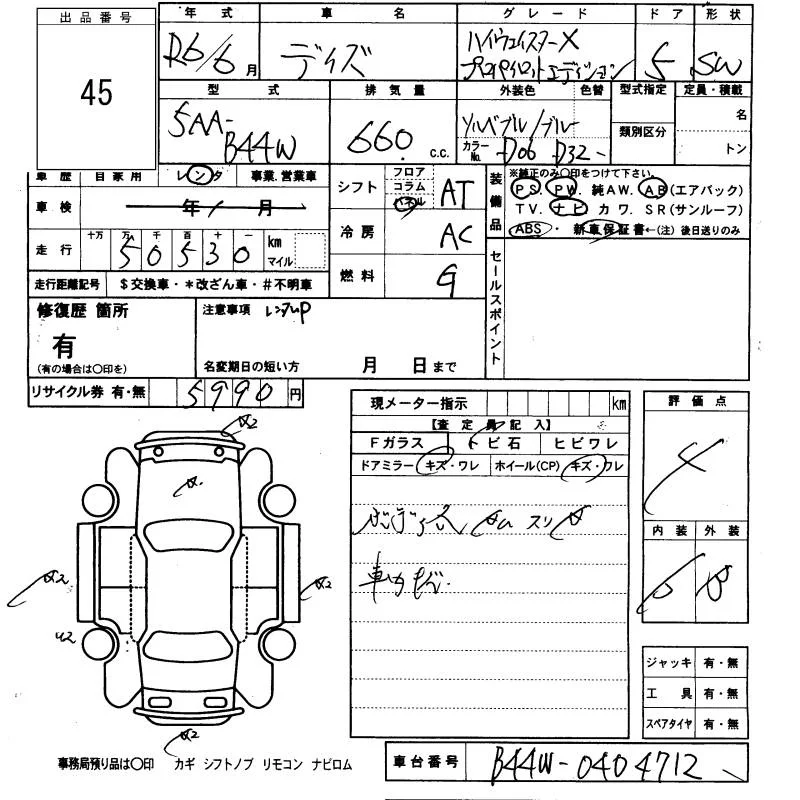 出品番号
45
年式 車名 グレード ドア 形状
R6/6月 デイズ ハイウェイスターX
プロパイロットエディション 5 SW
型式 排気量 外装色 色替 型式指定 定員・積載
5AA-
B44W 660 c.c. ソルベブル/ブルー 類別区分 名
カラーNo. D06 D32 トン
車歴 自家用 レンタ 事業.営業車
車検 年 月
走行 十万 万 千 百 十 一 km
50530 マイル
走行距離記号 $交換車・*改ざん車・#不明車
シフト フロア コラム パネル AT
冷房 AC
燃料 G
装備品 ※純正のみ○印をつけて下さい。
PS PW. 純AW. AB(エアバック)
TV. ナビ カワ. SR(サンルーフ)
ABS・ 新車保証書←(注) 後日送りのみ
セールスポイント
修復歴 箇所
有
(有の場合は○印を)
注意事項 レンタUP
名変期日の短い方 月 日まで
リサイクル券 有・無 5990円
現メーター指示 km
【査定員記入】
Fガラス トビ石 ヒビワレ
ドアミラー キズ・ワレ ホイール(CP) キズ・ワレ
スリ
評価点
4
内装 外装
B B
A2
A
A2 A2
U2
A2
ジャッキ 有・無
工具 有・無
スペアタイヤ 有・無
事務局預り品は○印 カギ シフトノブ リモコン ナビロム
車台番号 B44W-0404712